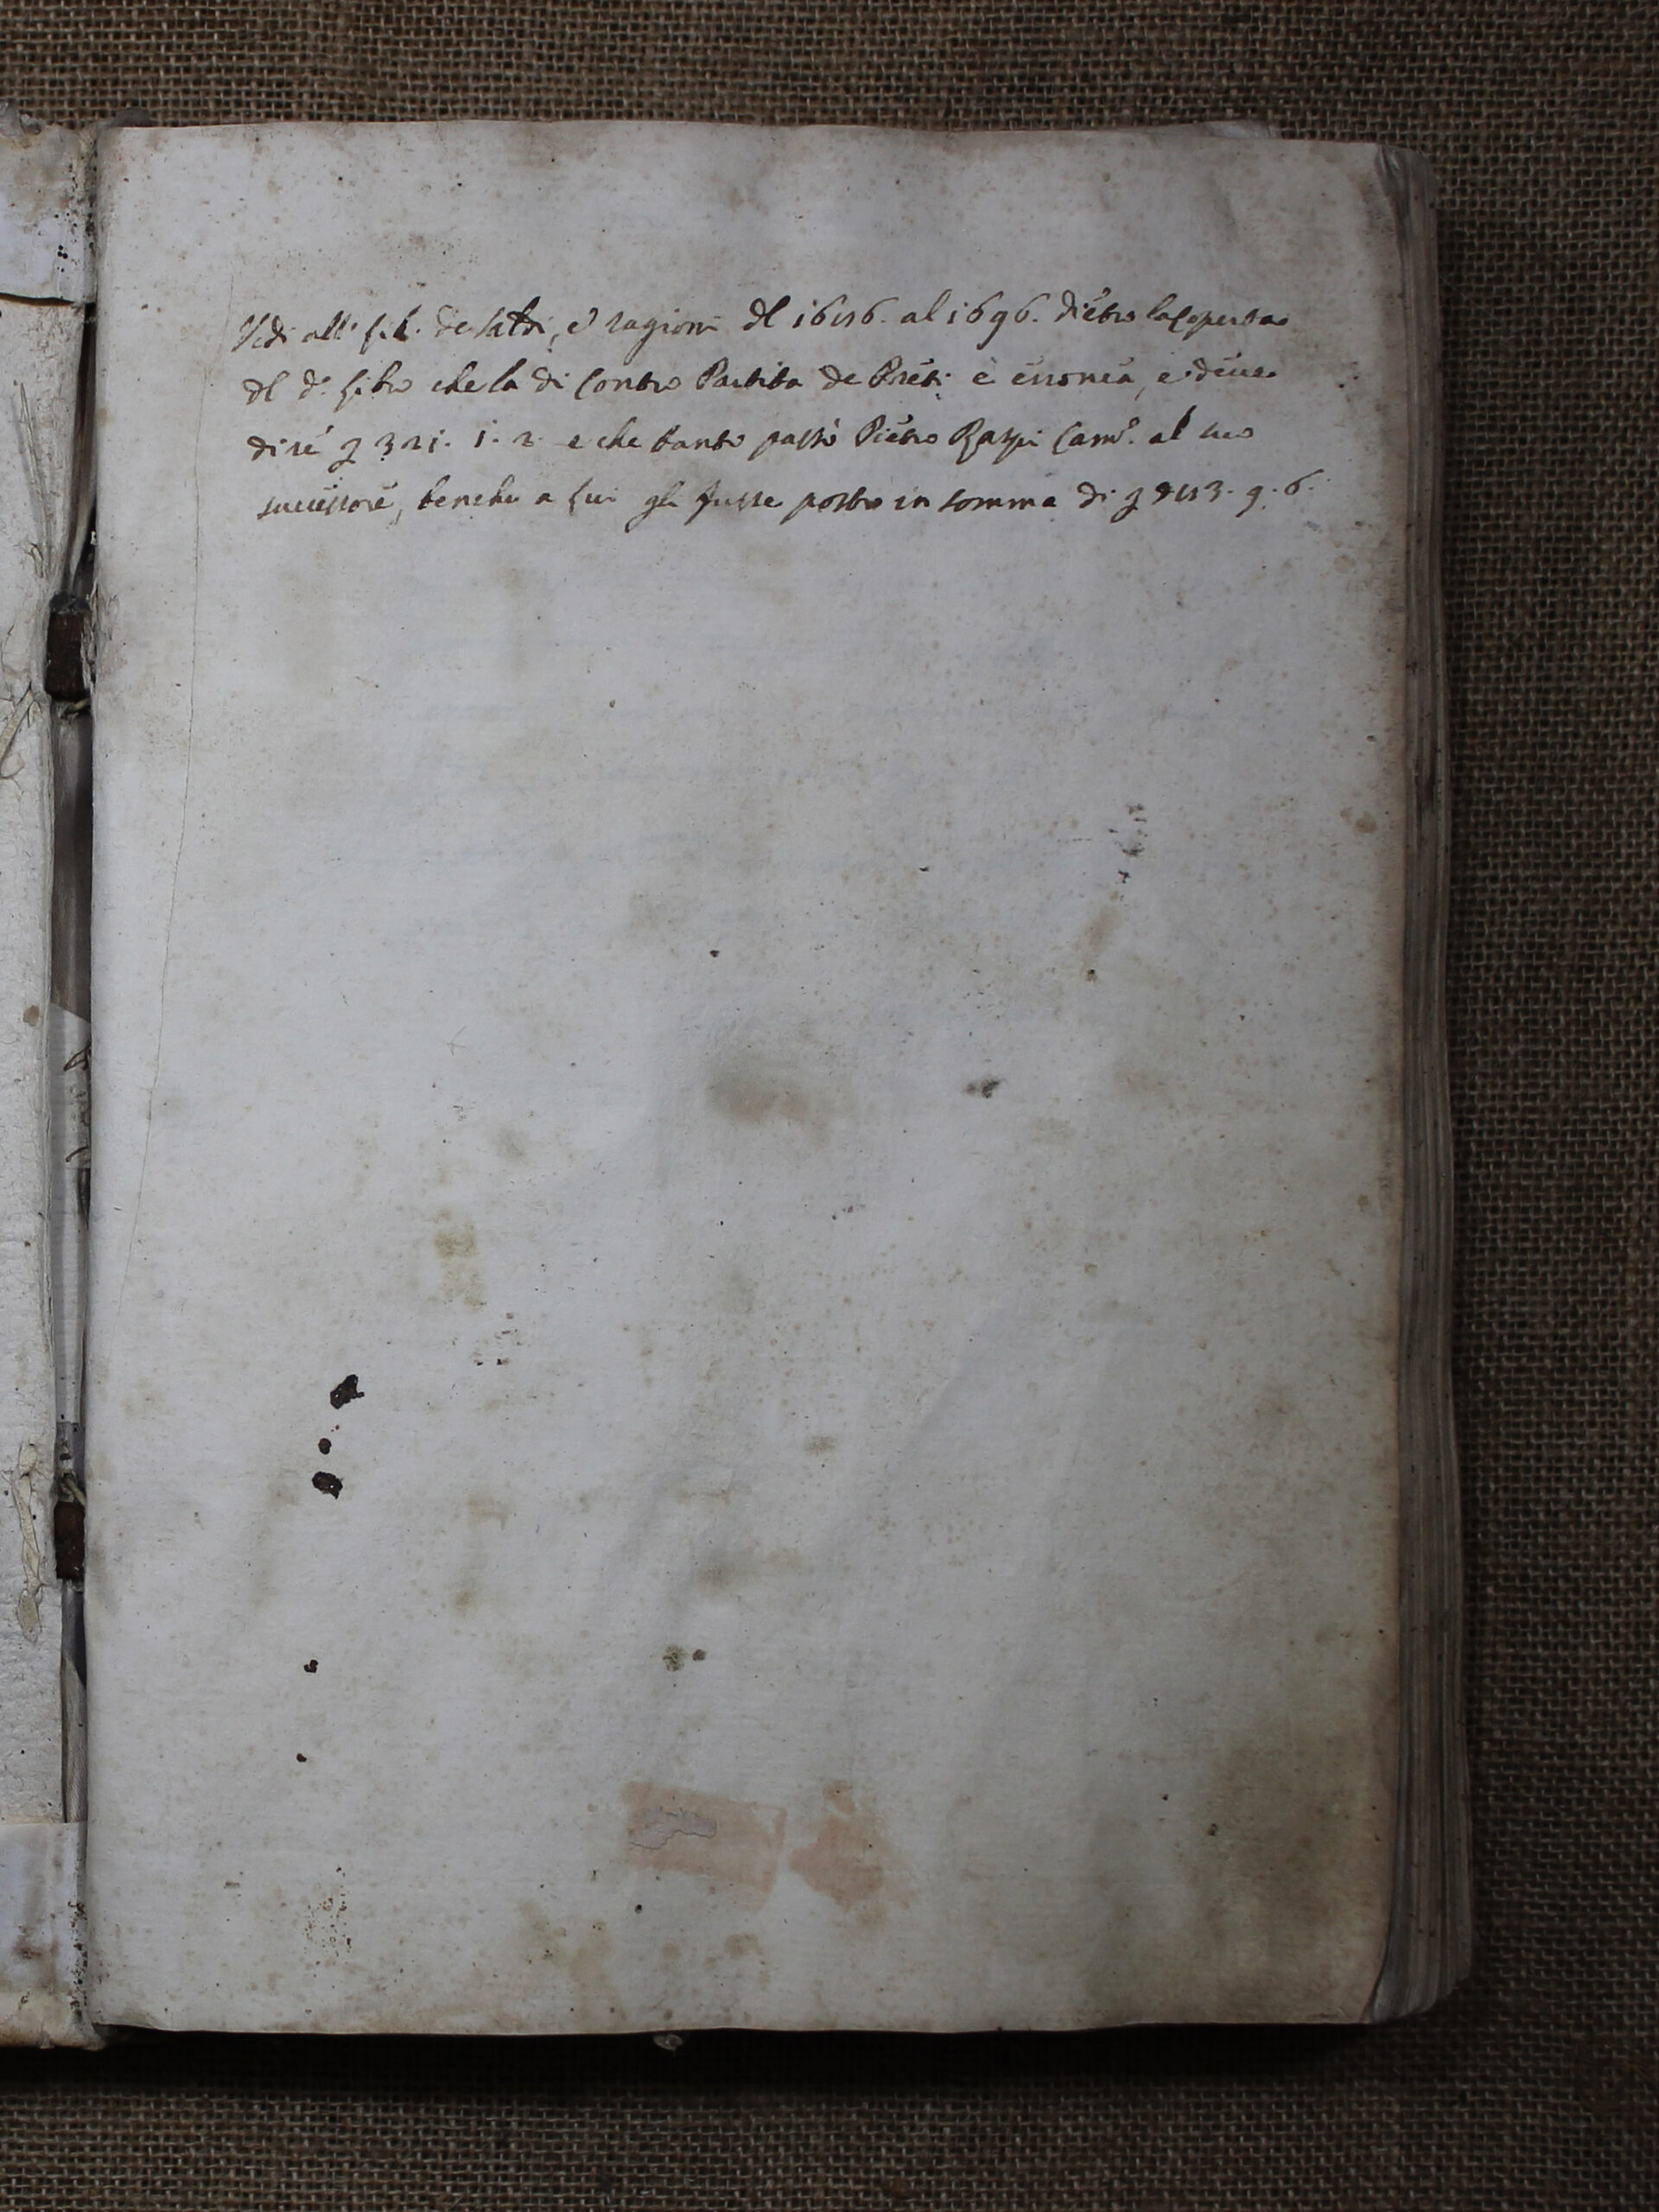 Vedi all' lib. de saldi, e ragioni dl 1656. al 1696. diétro la coperta
dl d.º libro che la di contro Partita de Préti è érronea, e déue
diré 321. 1. 2. e che tanto passò Piétro Raspi Cam.º al suo
successoré, benche a lui gli fusse posto in somma di 3. 9. 6.